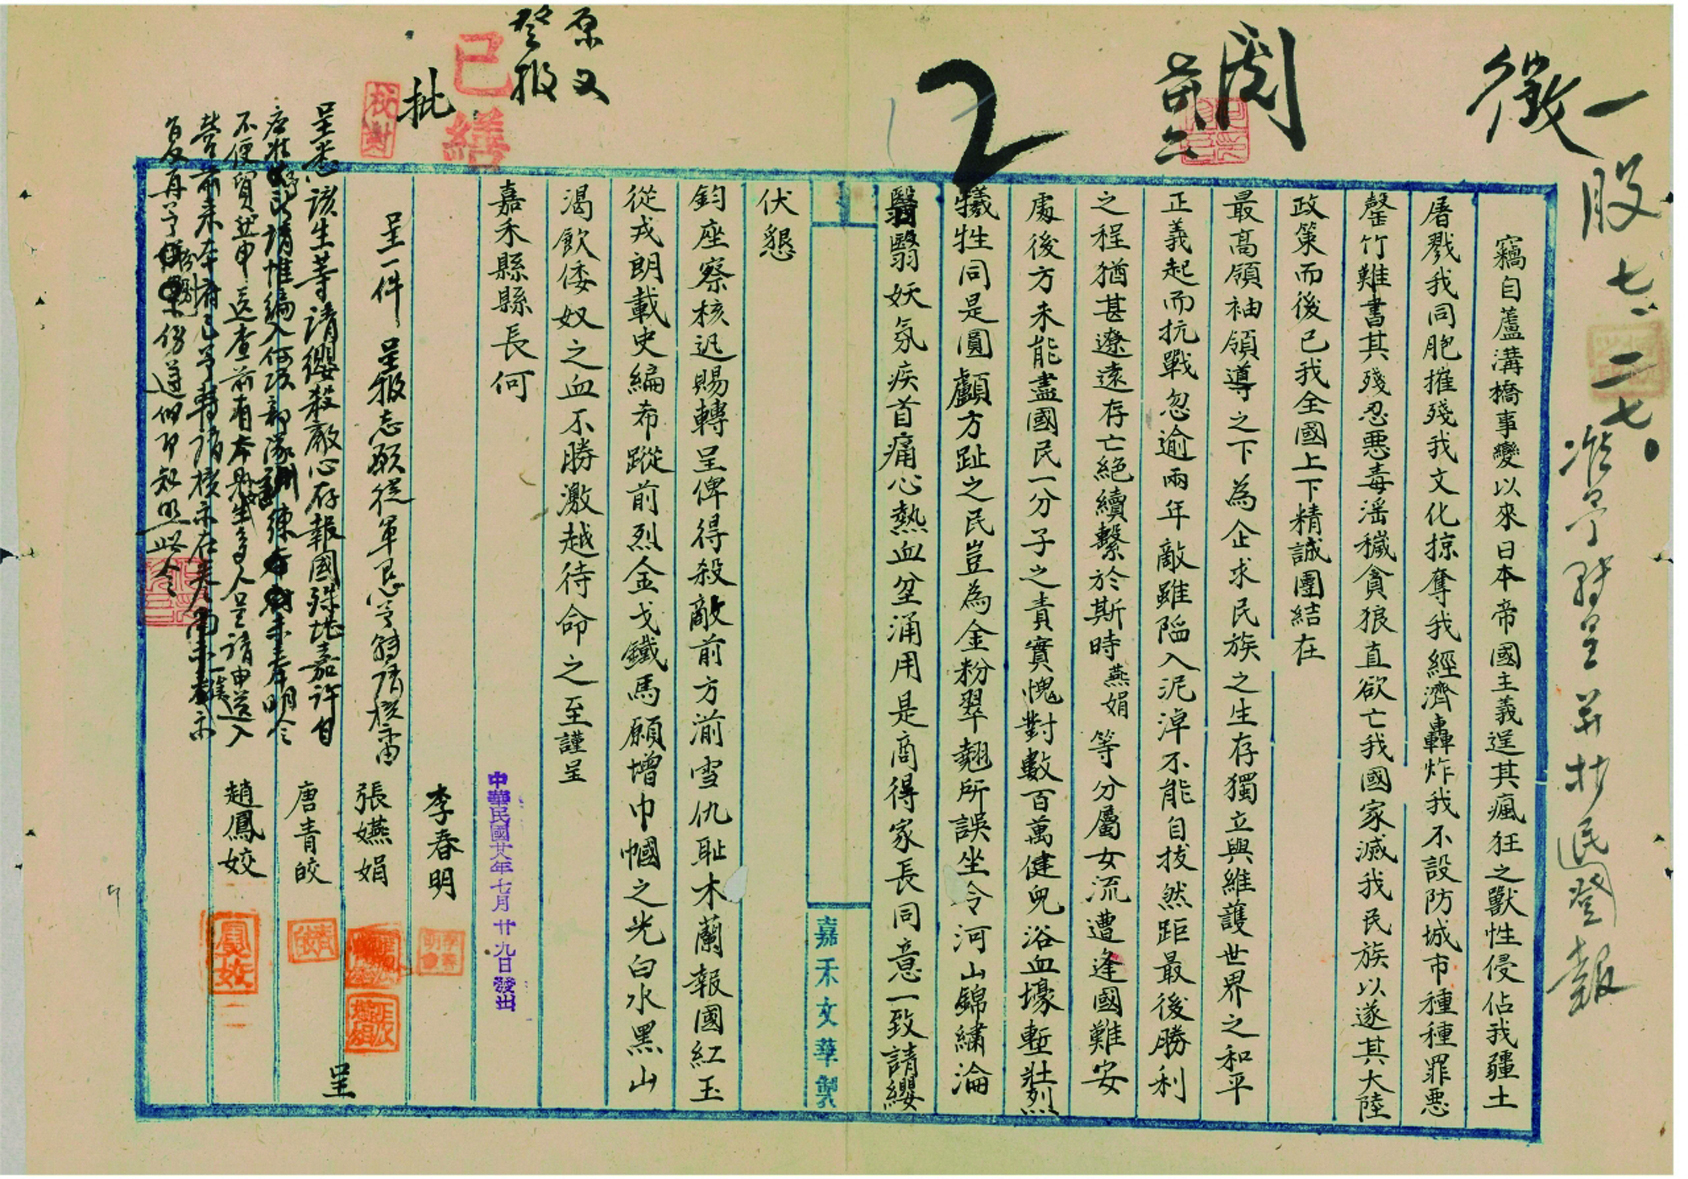 徵一
股七、二七。
准予轉呈并抄民國登報
閱
2
竊自蘆溝橋事變以來日本帝國主義逞其瘋狂之獸性侵佔我疆土
屠戮我同胞摧殘我文化掠奪我經濟轟炸我不設防城市種種罪惡
罄竹難書其殘忍惡毒滛穢貪狼直欲亡我國家滅我民族以遂其大陸
政策而後已我全國上下精誠團結在
最高領袖領導之下為企求民族之生存獨立與維護世界之和平
正義起而抗戰忽逾兩年敵雖陷入泥淖不能自拔然距最後勝利
之程猶甚遼遠存亡絕續繫於斯時燕娟等分屬女流遭逢國難安
處後方未能盡國民一分子之責實愧對數百萬健兒浴血壕塹壯烈
犧牲同是圓顱方趾之民豈為金粉翠翹所誤坐令河山錦繡淪
翳妖氛疾首痛心熱血坌涌用是商得家長同意一致請纓
嘉禾文華製
伏懇
鈞座察核迅賜轉呈俾得殺敵前方湔雪仇耻木蘭報國紅玉
從戎朗載史編希蹤前烈金戈鐵馬願增巾幗之光白水黑山
渴飲倭奴之血不勝激越待命之至謹呈
嘉禾縣縣長何
中華民國廿八年七月廿九日發出
李春明
張嬿娟
唐青皎
趙鳳姣
呈
原文
登報
已繕
校對
批
呈一件 呈報志願從軍懇予轉請核備由
呈悉該生等請纓殺敵心存報國殊堪嘉許自
應准予請惟編入何項部隊訓練未奉明令
不便貿然申送查前有本縣女生多人呈請申送入
營前來本府已予轉請核示在案
復再予仰遵仰即知照此令